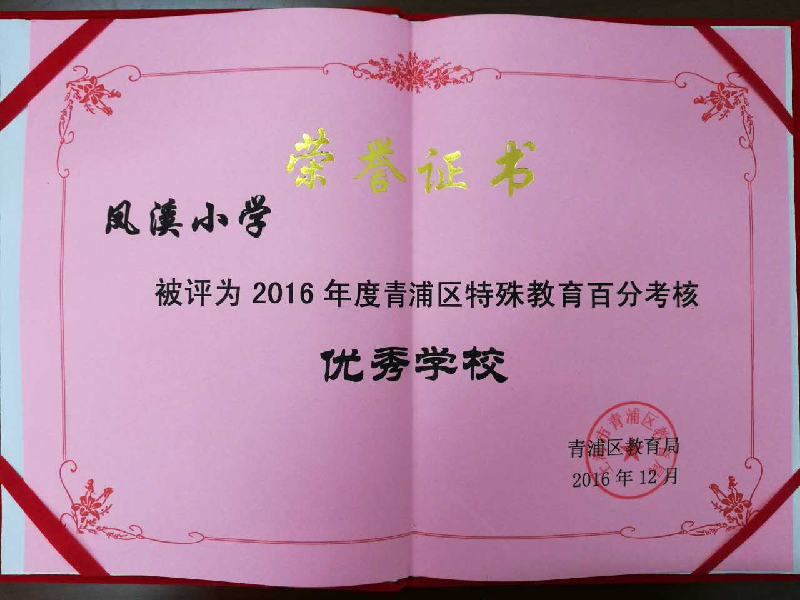 荣誉证书
凤溪小学
被评为 2016 年度青浦区特殊教育百分考核
优秀学校
青浦区教育局
2016 年 12 月
上海市青浦区教育局